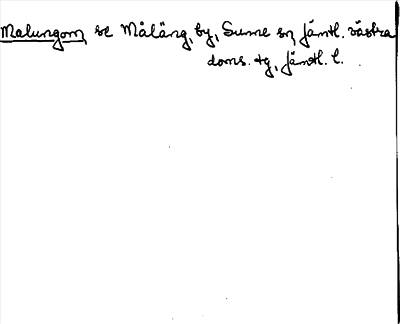 Malungom, se Målång, by, Sunne sn, Jämtl. västra
doms. tg, Jämtl. l.